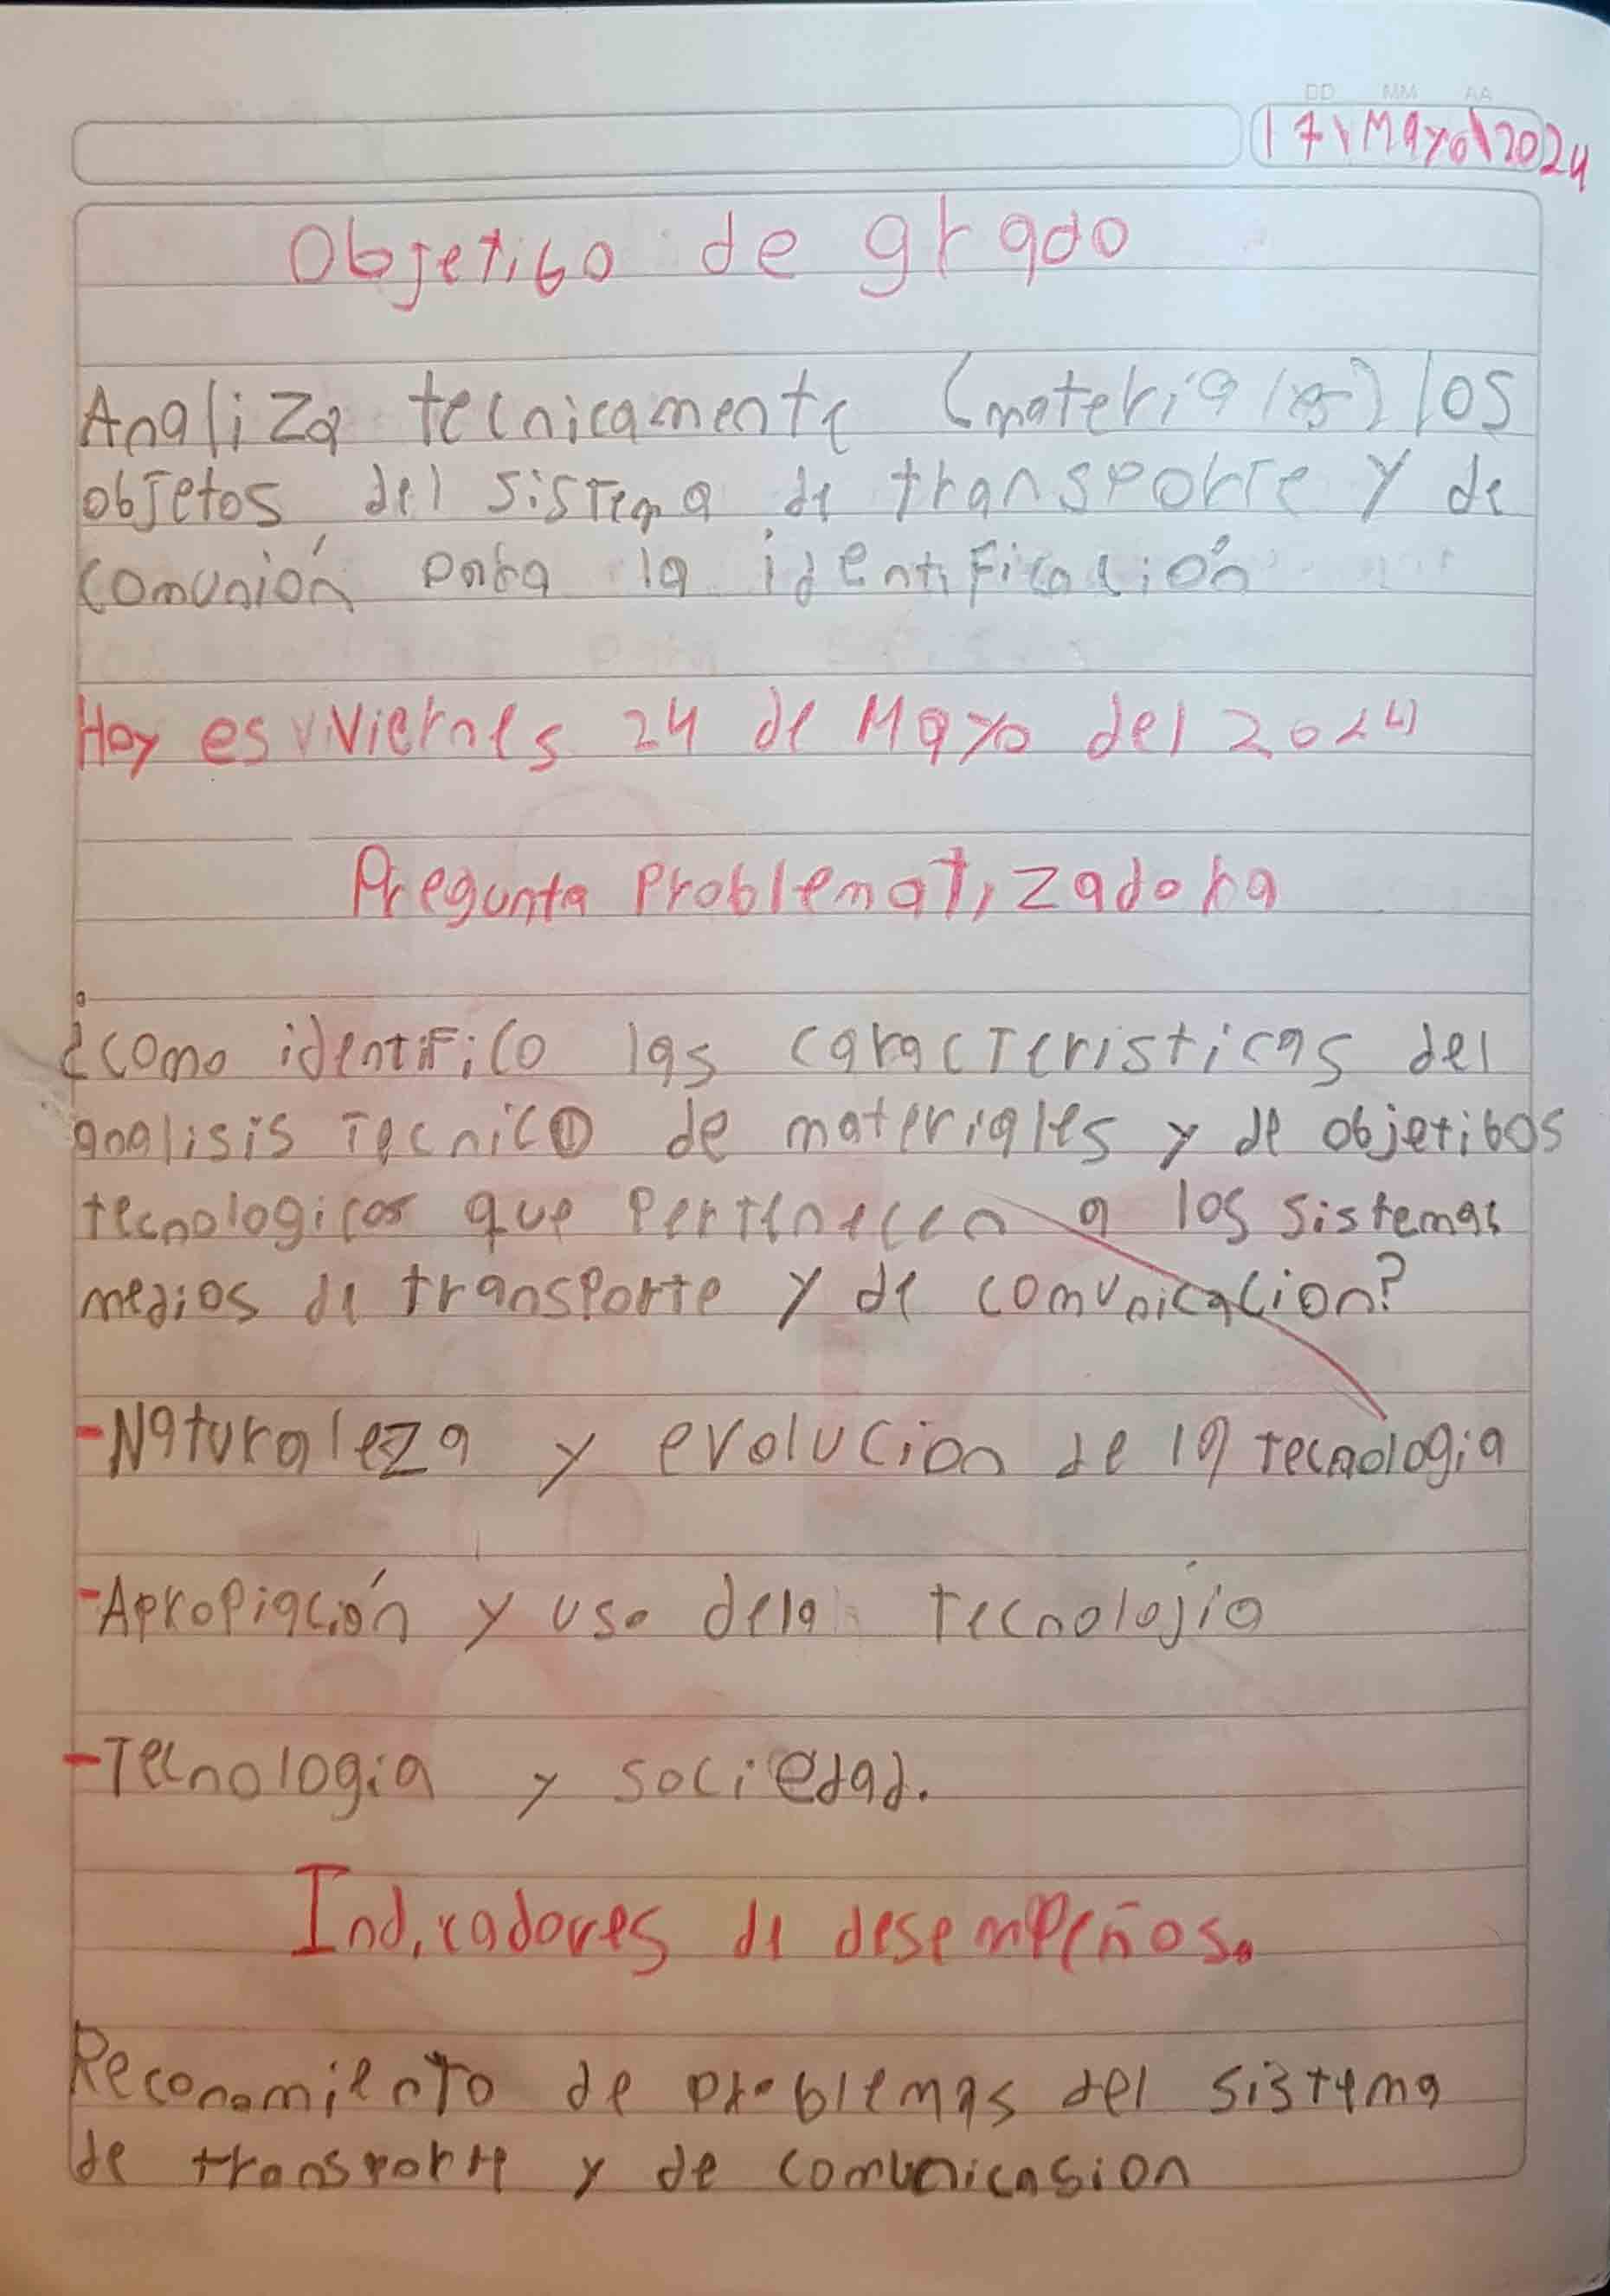 DD MM AA
17\Mayo\2024
Objetibo de grado
Analiza tecnicamente (materiales) los
objetos del sistema de transporte y de
comunión para la identificación
Hoy es viviernes 24 de Mayo del 2024
Pregunta Problematizadora
¿como identifico las caracteristicas del
analisis tecnico de materiales y de objetibos
tecnologicos que pertenecen a los sistemas
medios de transporte y de comunicacion?
-Naturaleza y evolucion de la tecnologia
-Apropiación y uso dela tecnolojia
-Tecnologia y sociedad.
Indicadores de desempeños.
Reconomiento de problemas del sistema
de transporte y de comunicasion